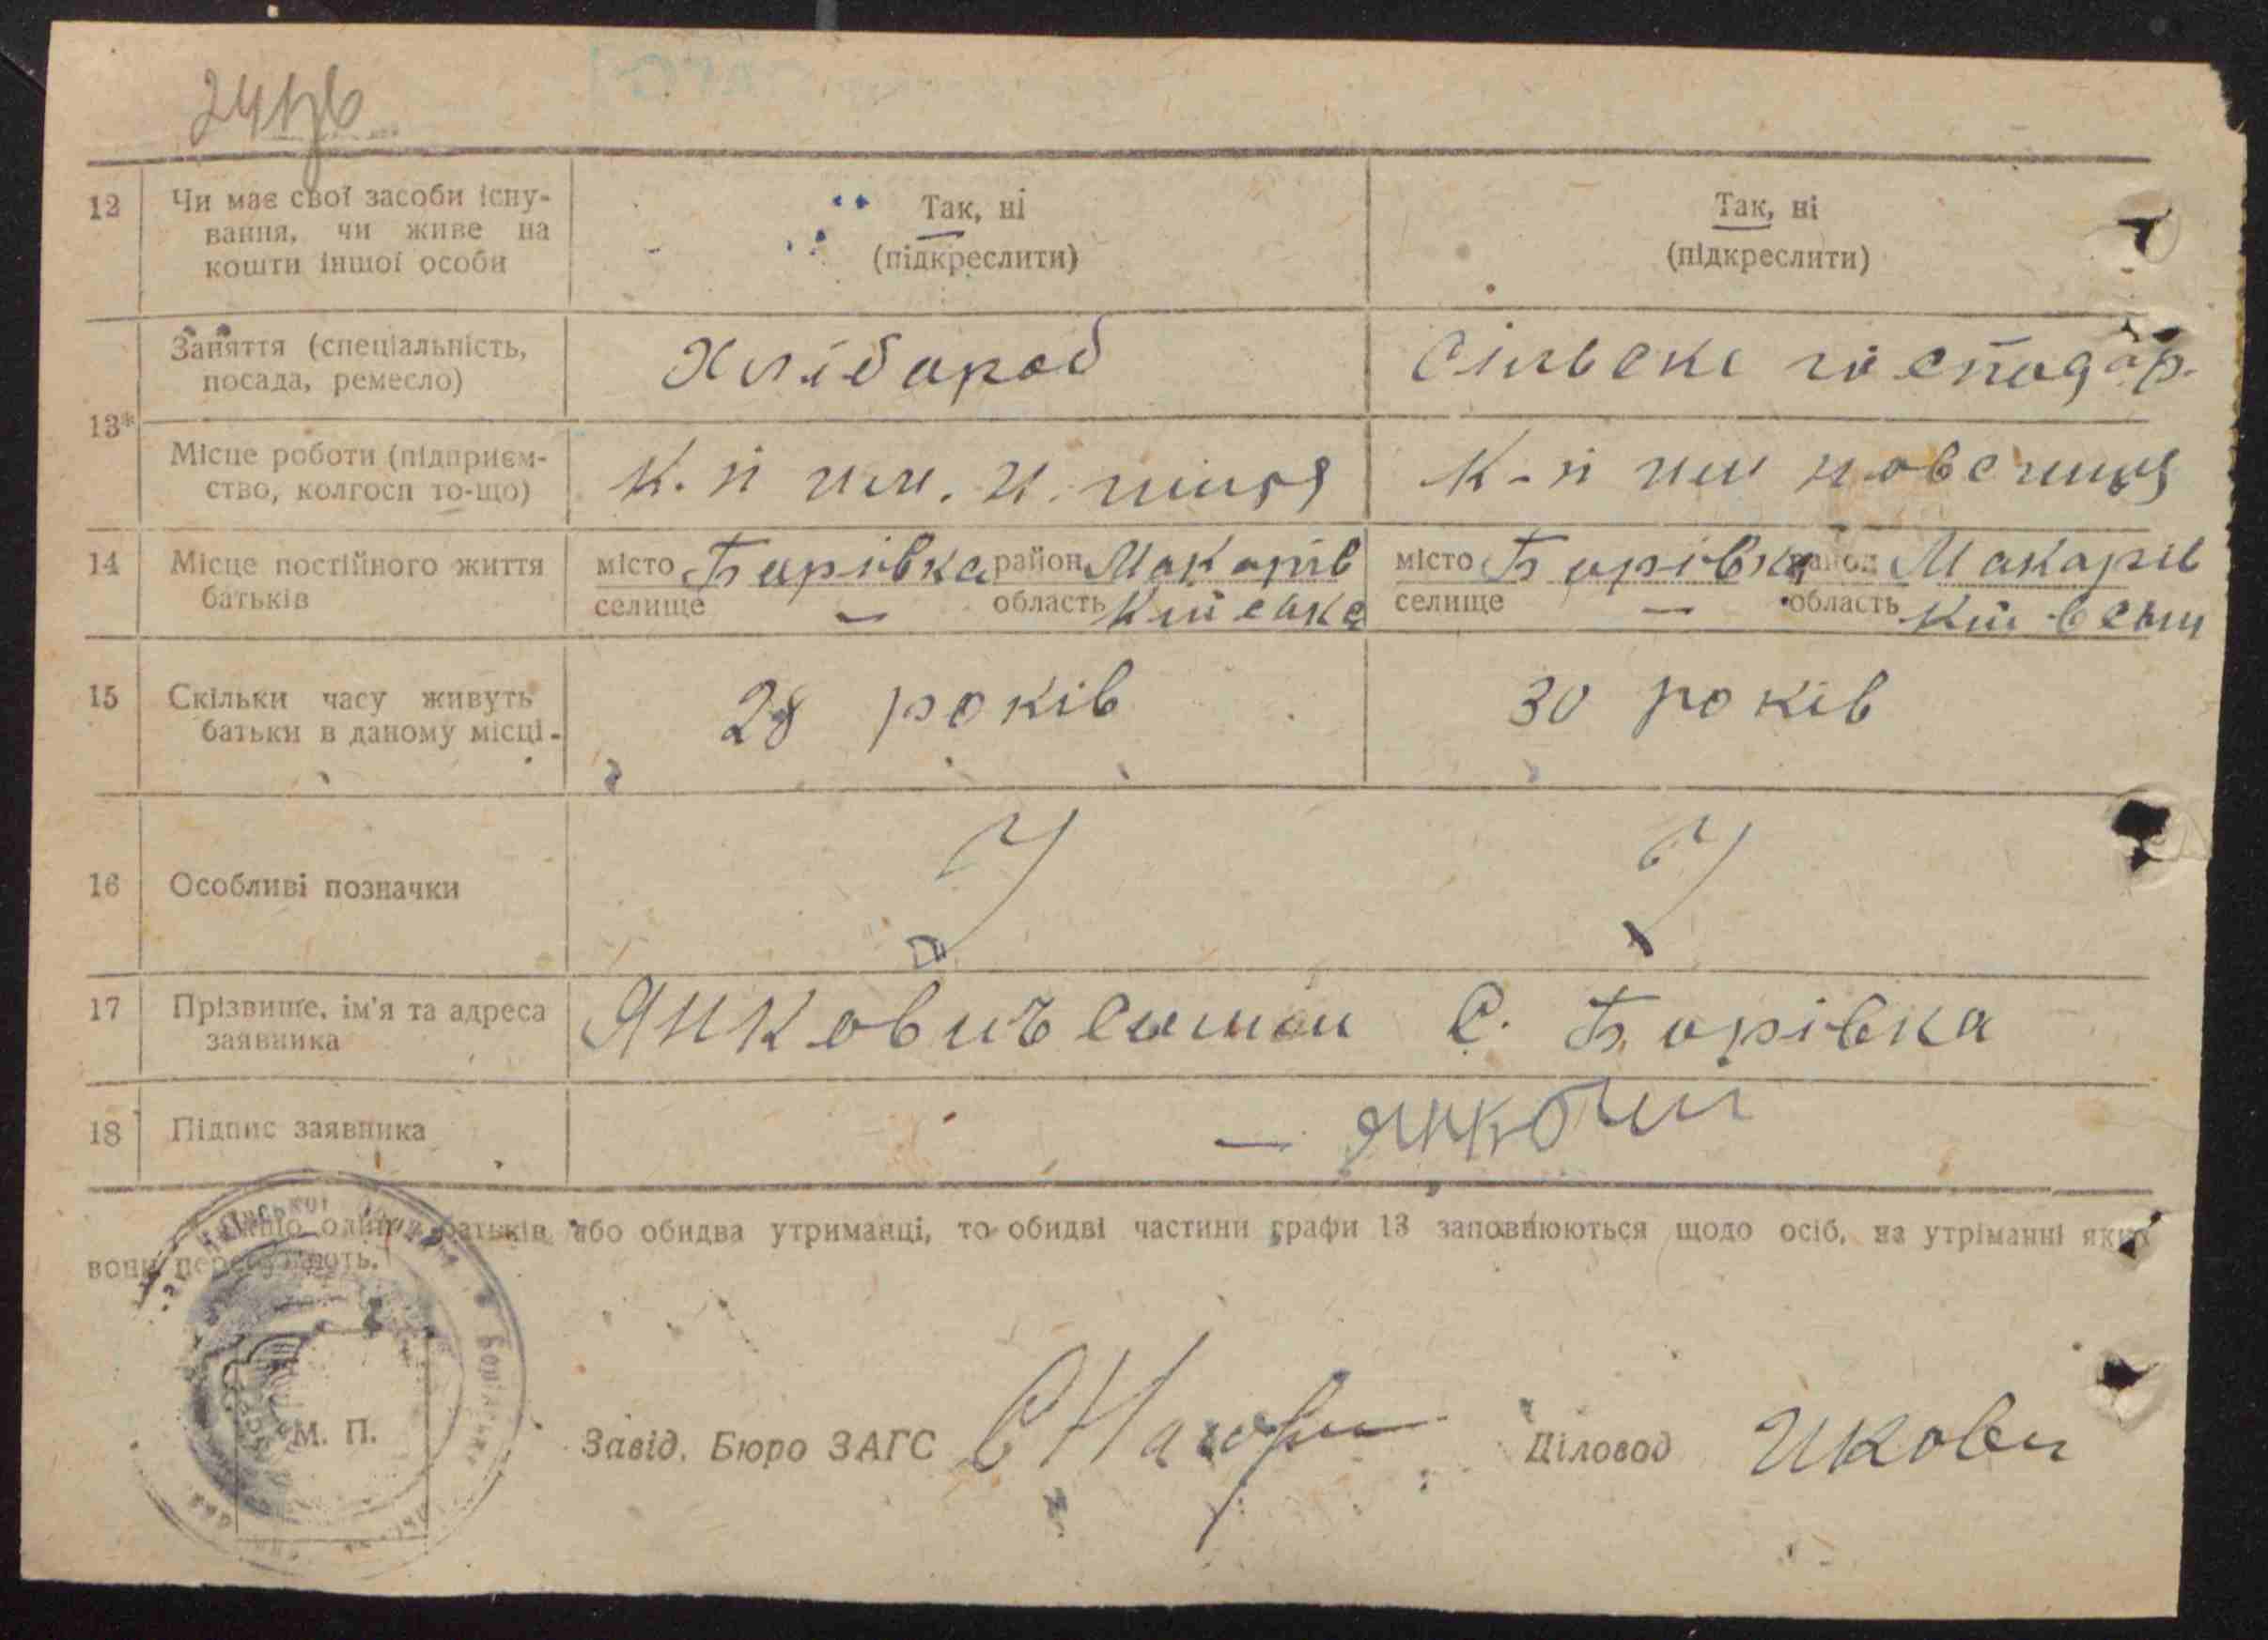 12 Чи має свої засоби існу- Так, ні Так, ні
вання, чи живе на
кошти іншої особи (підкреслити) (підкреслити)
Заняття (спеціальність, Хлібароб Сільске господар.
посада, ремесло)
13*
Місце роботи (підприєм- К. п им. К-п им
ство, колгосп то-що)
14 Місце постійного життя місто Борівка район Макарів місто Борівка район Макарів
батьків селище — область Київське селище — область
15 Скільки часу живуть 28 років 30 років
батьки в даному місці
16 Особливі позначки
17 Прізвище, ім'я та адреса Янкович С. Борівка
заявника
18 Підпис заявника —
якщо один батьків або обидва утриманці, то обидві частини графи 13 заповнюються щодо осіб, на утріманні яких
вони перебувають.
М. П. Завід. Бюро ЗАГС Діловод